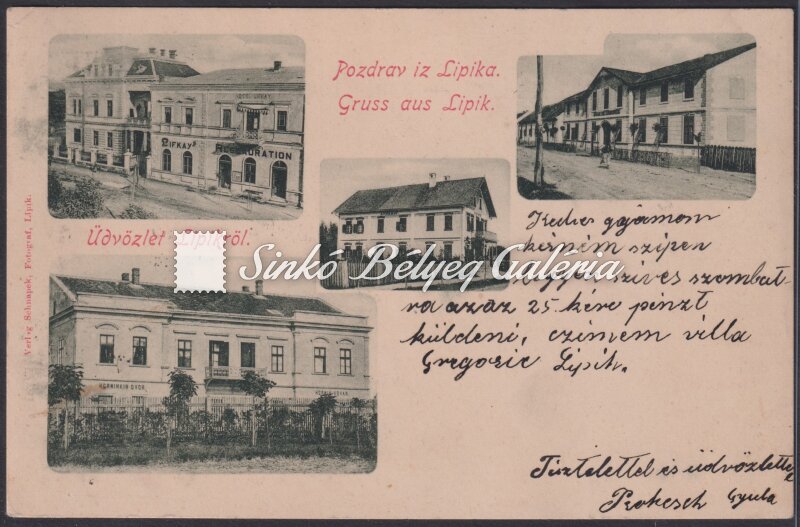 Pozdrav iz Lipika.
Gruss aus Lipik.
LIFKAY'S RESTAURATION
Üdvözlet Lipikről.
Sinkó Bélyeg Galéria
Verlag Schnapek, Fotograf, Lipik.
Kedves gyámom
kérném szépen
legyen szives szombat-
ra azaz 25 kére pénzt
küldeni, czimem villa
Gregosic Lipik.
UDVAR
Tisztelettel és üdvözlettel
Prokesch Gyula